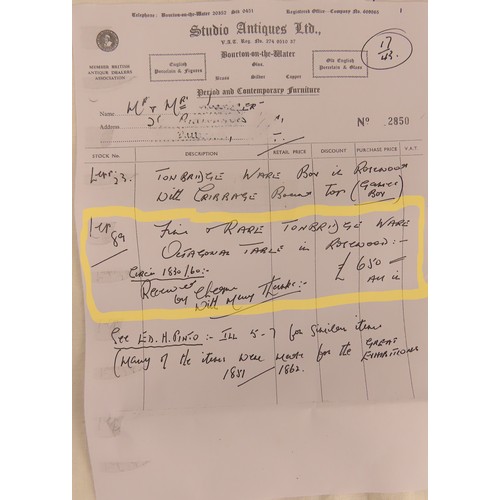 Telephone : Bourton-on-the-Water 20352 Registered Office—Company No.
Studio Antiques Ltd.,
V.A.T. Reg. No. 274 9210 37
Bourton-on-the-Water
MEMBER BRITISH ANTIQUE DEALERS ASSOCIATION
English Porcelain & Figures
Glass,
Brass Silver Copper
Old English Porcelain & Glass
17/43.
Period and Contemporary Furniture
Name Mr & Mrs
Address
No. 2850
STOCK No. DESCRIPTION RETAIL PRICE DISCOUNT PURCHASE PRICE V.A.T.
TONBRIDGE WARE BOX in ROSEWOOD
With CRIBBAGE BOARD TOP (GAMES BOX)
89 Fine & RARE TONBRIDGE WARE
OCTAGONAL TABLE in ROSEWOOD:-
Circa 1830/60:- £650
Received by Cheque
With Many Thanks:-
See ED. H. PINTO :- ILL 5-7 for similar items
(Many of the items were made for the GREAT EXHIBITIONS
1851 / 1862.